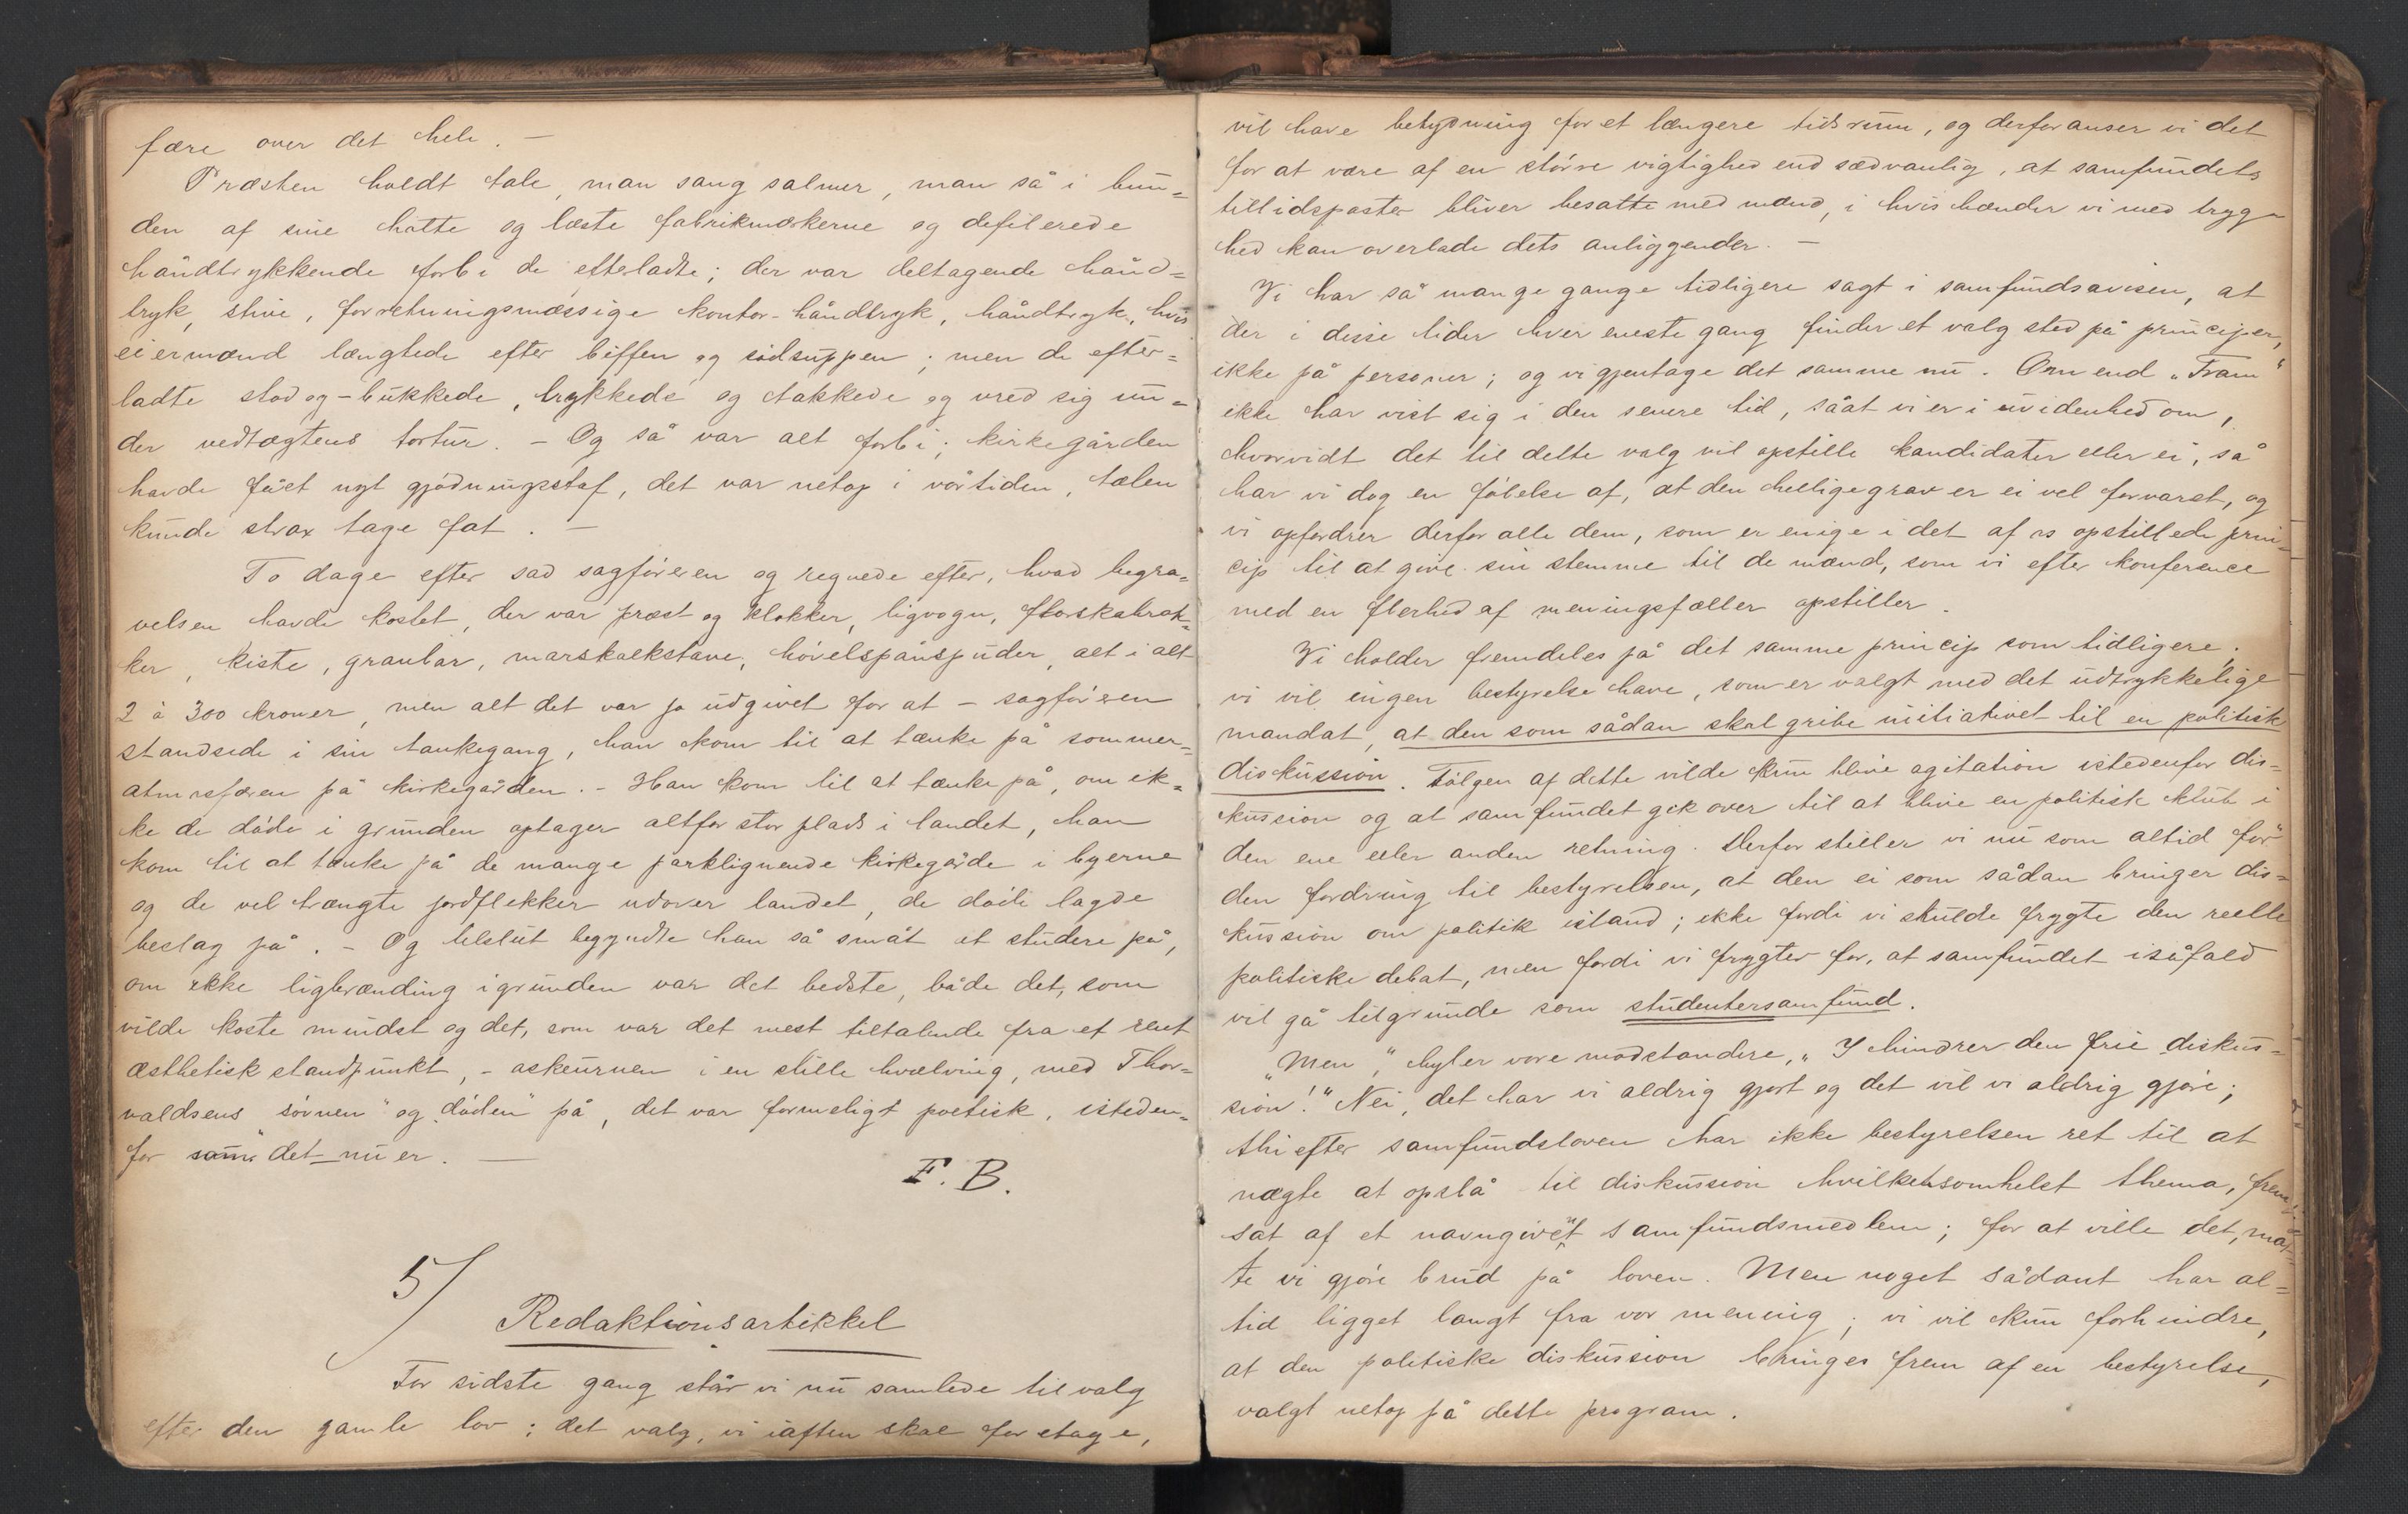 fære over det hele. —
Præsten holdt tale, man sang salmer, man så i bun=
den af sine hatte og læste fabrikmærkerne og defilerede
håndtrykkende forbi de efterladte; der var deltagende hånd=
tryk, stive, forretningsmæssige kontor-håndtryk, håndtryk, hvis
eiermænd længtede efter biffen og södsuppen; men de efter=
ladte stod og - bukkede, trykkede og takkede og vred sig un=
der vedtægtens tortur. - Og så var alt forbi; kirkegården
havde fået nyt gjödningsstof, det var netop i vårtiden, tælen
kunde strax tage fat. —
To dage efter sad sagföreren og regnede efter, hvad begra=
velsen havde kostet, der var præst og klokker, ligvogn, florskabrak=
ker, kiste, granbar, marskalkstave, hövelspånspuder, alt i alt
2 à 300 kroner, men alt det var jo udgivet for at - sagföreren
standsede i sin tankegang, han kom til at tænke på sommer=
atmosfæren på kirkegården. - Han kom til at tænke på, om ik=
ke de döde i grunden optager altfor stor plads i landet, han
kom til at tænke på de mange parklignende kirkegårde i byerne
og de vel trængte jordflekker udover landet, de döde lagde
beslag på. - Og tilslut begyndte han så småt at studere på,
om ikke ligbrænding igrunden var det bedste, både det, som
vilde koste mindst og det, som var det mest tiltalende fra et rent
æsthetisk standpunkt, - askeurnen i en stille hvælving, med Thor=
valdsens "sövnen" og "döden" på, det var formeligt poetisk, isteden=
for som det nu er. —
F. B.
5/
Redaktionsartikkel
For sidste gang står vi nu samlede til valg
efter den gamle lov; det valg, vi iaften skal foretage,
vil have betydning for et længere tidsrum, og derfor anser vi det
for at være af en större vigtighed end sædvanlig, at samfundets
tillidsposter bliver besatte med mænd, i hvis hænder vi med tryg=
hed kan overlade dets anliggender. —
Vi har så mange gange tidligere sagt i samfundsavisen, at
der i disse tider hver eneste gang finder et valg sted på principer,
ikke på personer; og vi gjentage det samme nu. Om end "Fram"
ikke har vist sig i den senere tid, såat vi er i uvidenhed om,
hvorvidt det til dette valg vil opstille kandidater eller ei, så
har vi dog en fölelse af, at den hellige grav er ei vel forvaret, og
vi opfordrer derfor alle dem, som er enige i det af os opstillede prin=
cip til at give sin stemme til de mænd, som vi efter konference
med en flerhed af meningsfæller opstiller.
Vi holder fremdeles på det samme princip som tidligere;
vi vil ingen bestyrelse have, som er valgt med det udtrykkelige
mandat, at den som sådan skal gribe initiativet til en politisk
diskussion. Fölgen af dette vilde kun blive agitation istedenfor dis=
kussion og at samfundet gik over til at blive en politisk klub i
den ene eller anden retning. Derfor stiller vi nu som altid för
den fordring til bestyrelsen, at den ei som sådan bringer dis=
kussion om politik istand; ikke fordi vi skulde frygte den reelle
politiske debat, men fordi vi frygter for, at samfundet isåfald
vil gå tilgrunde som studentersamfund.
"Men", hyler vore modstandere, "I hindrer den frie diskus=
sion!" Nei, det har vi aldrig gjort og det vil vi aldrig gjöre;
thi efter samfundsloven har ikke bestyrelsen ret til at
nægte at opslå til diskussion hvilketsomhelst thema, frem=
sat af et navngivet samfundsmedlem; for at ville det, måt=
te vi gjöre brud på loven. Men noget sådant har al=
tid ligget langt fra vor mening; vi vil kun forhindre,
at den politiske diskussion bringes frem af en bestyrelse,
valgt netop på dette program.